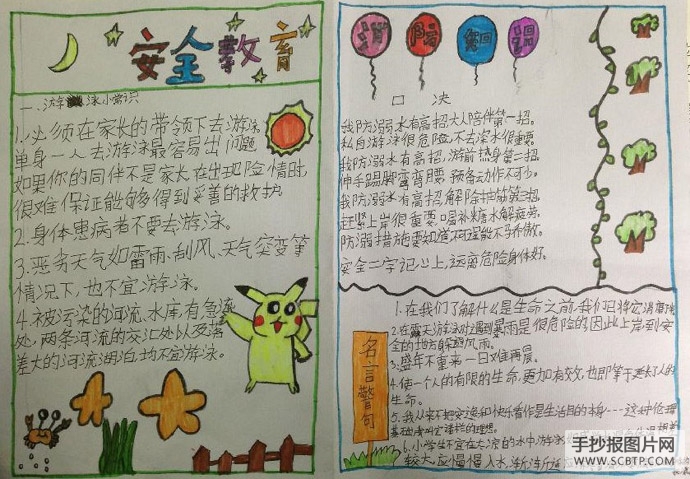 安全教育
一、游泳小常识
1.必须在家长的带领下去游泳
单身一人去游泳最容易出问题
如果你的同伴不是家长在出现险情时,
很难保证能够得到妥善的救护
2.身体患病者不要去游泳。
3.恶劣天气如雷雨、刮风、天气突变等
情况下,也不宜游泳。
4.被污染的河流、水库有急流
处,两条河流的交汇处以及落
差大的河流湖泊均不宜游泳。
消 防 知 识
口 决
我防溺水有高招,大人陪伴第一招。
私自游泳很危险,不去深水很重要
我防溺水有高招,游前热身第二招
伸手踢脚弯弯腰,预备动作不可少。
我防溺水有高招,解除抽筋第三招
赶紧上岸很重要,喝补糖水解疲劳
防溺措施要知道,
安全二字记心上,远离危险身体好。
名言警句
1.在我们了解什么是生命之前,我们已将它消磨了
2.在露天游泳时遇到暴雨是很危险的因此上岸到安
全的地方躲避风雨。
3.盛年不重来一日难再晨。
4.使一个人的有限的生命,更加有效,也即等于延长了人的
生命。
5.我从来不把安逸和快乐看作是生活目的本身---这种伦理
基础,我叫它猪栏的理想。
6.小学生不宜在太凉的水中游泳
较大,应慢慢入水,渐渐适应
手抄报图片网
WWW.SCBTP.COM